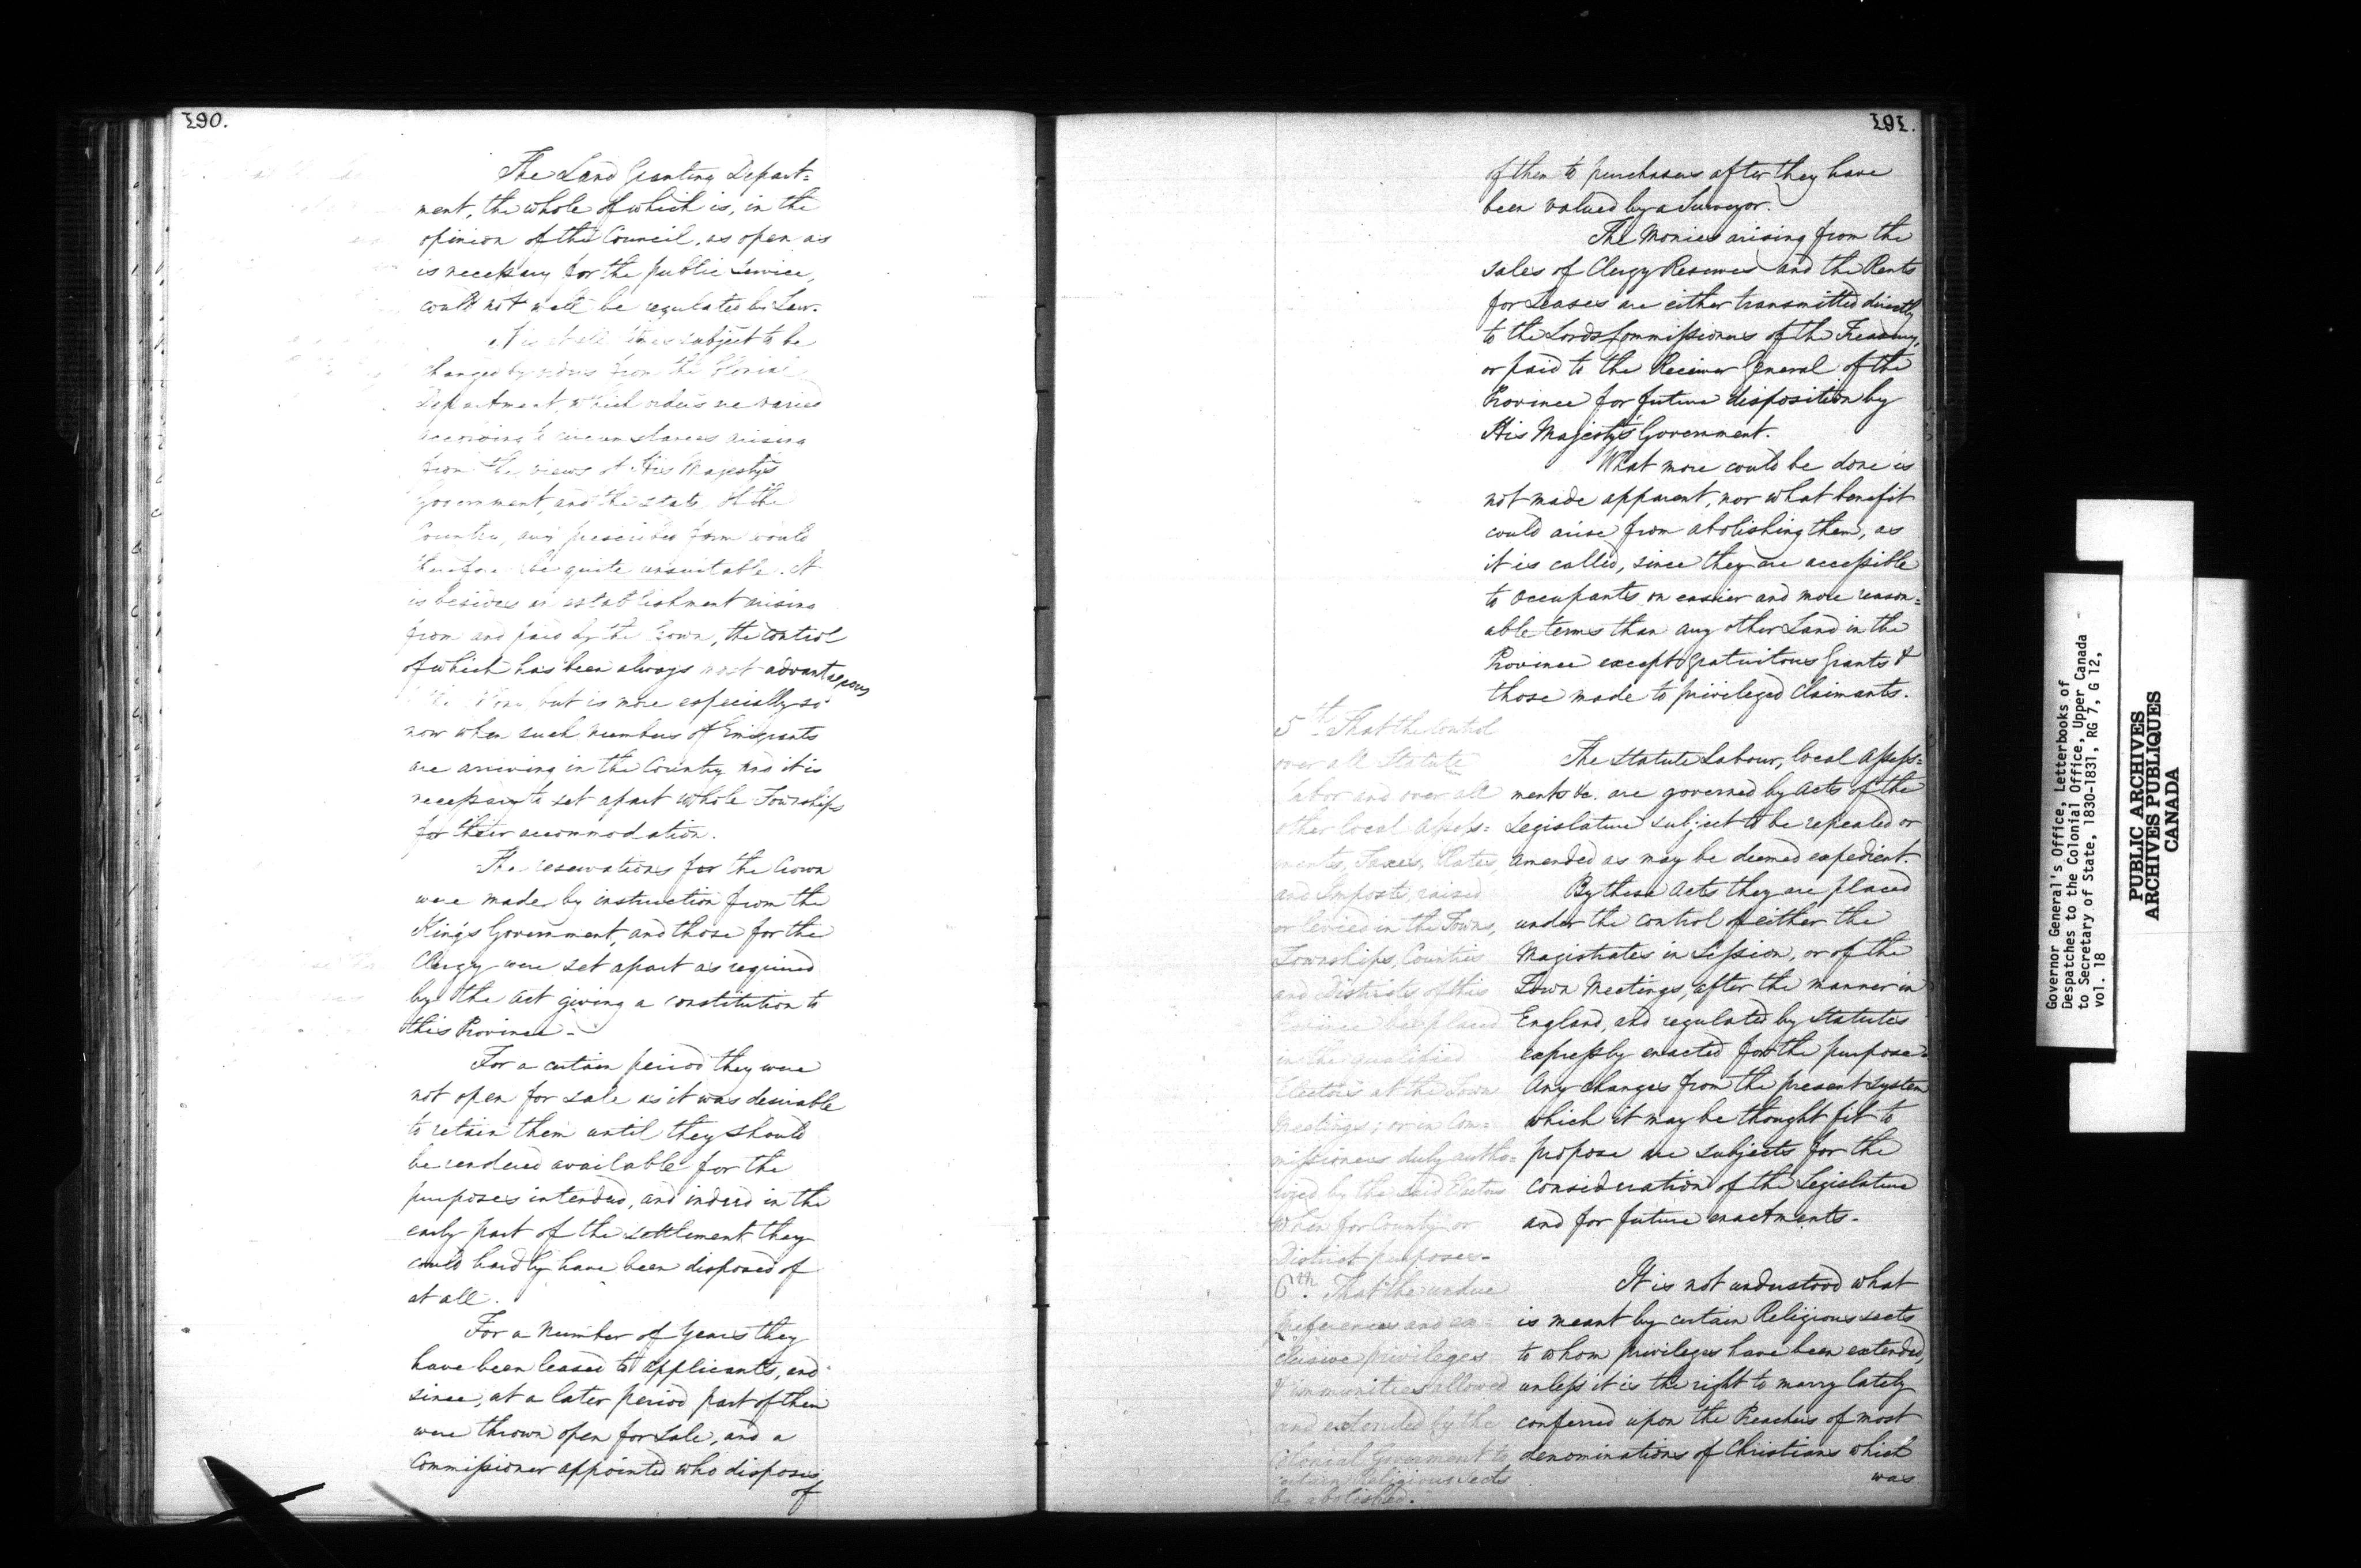 190.
The Land Granting Depart=
ment, the whole of which is, in the
opinion of the Council, as open as
is necessary for the public service,
could not well be regulated by Law.
It is at all times subject to be
changed by orders from the Colonial
Department, which orders are varied
according to circumstances arising
from the views of His Majesty's
Government, and the state of the
Country, any prescribed form would
therefore be quite unsuitable. It
is besides an establishment arising
from and paid by the Crown, the control
of which has been always most advantageous
but is more especially so
now when such numbers of Emigrants
are arriving in the Country and it is
necessary to set apart whole Townships
for their accommodation.
The reservations for the Crown
were made by instruction from the
King's Government, and those for the
Clergy were set apart as required
by the Act giving a constitution to
this Province -
For a certain period they were
not open for sale as it was desirable
to retain them until they should
be rendered available for the
purposes intended, and indeed in the
early part of the settlement they
could hardly have been disposed of
at all.
For a number of Years they
have been leased to applicants, and
since, at a later period part of them
were thrown open for sale, and a
Commissioner appointed who disposes
of
191.
of them to purchasers after they have
been valued by a Surveyor.
The Monies arising from the
sales of Clergy Reserves and the Rents
for Leases are either transmitted directly
to the Lords Commissioners of the Treasury,
or paid to the Receiver General of the
Province for future disposition by
His Majesty's Government.
What more could be done is
not made apparent, nor what benefit
could arise from abolishing them, as
it is called, since they are accessible
to occupants on easier and more reason=
able terms than any other Land in the
Province except Gratuitous Grants &
those made to privileged Claimants.
5th That the control
over all Statute
Labor and over all
other local Assess=
ments, Taxes, Rates,
and Imposts, raised
or levied in the Towns,
Townships, Counties
and Districts of this
Province be placed
in the qualified
Electors at the Town
Meetings; or in Com=
missioners duly autho=
rized by the said Electors
when for County or
District purposes -
The Statute Labour, local Assess=
ments &c. are governed by Acts of the
Legislature subject to be repealed or
amended as may be deemed expedient.
By these Acts they are placed
under the control of either the
Magistrates in Session, or of the
Town Meetings, after the manner in
England, and regulated by Statutes
expressly enacted for the purpose.
Any changes from the present system
which it may be thought fit to
propose are subjects for the
consideration of the Legislature
and for future enactments -
6th. That the undue
preferences and ex=
clusive privileges
& immunities allowed
and extended by the
Colonial Government to
certain Religious sects
be abolished.
It is not understood what
is meant by certain Religious sects
to whom privileges have been extended,
unless it is the right to marry lately
conferred upon the Preachers of most
denominations of Christians which
was
Governor General's Office, Letterbooks of
Despatches to the Colonial Office, Upper Canada -
to Secretary of State, 1830-1831, RG 7, G 12,
vol. 18
PUBLIC ARCHIVES
ARCHIVES PUBLIQUES
CANADA